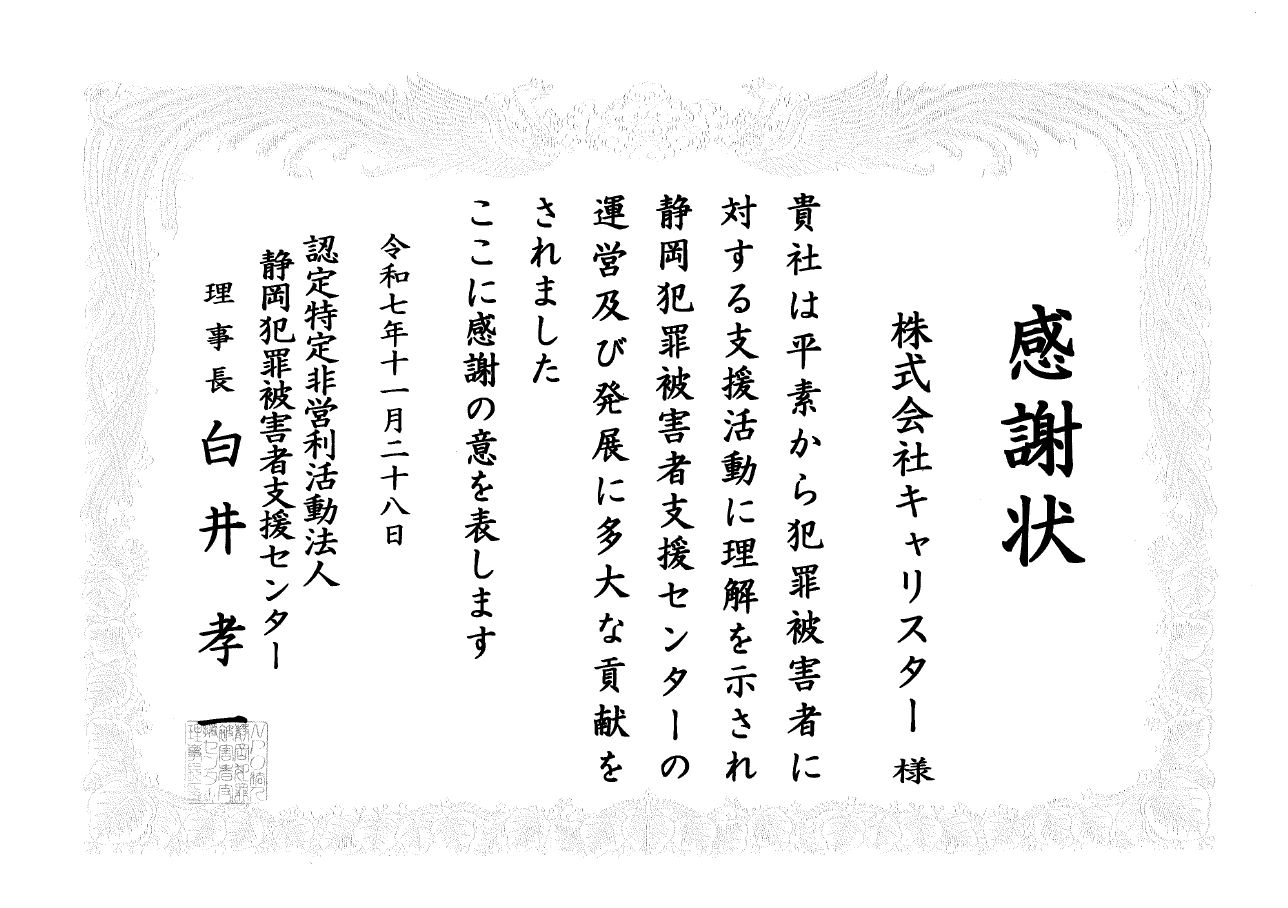 感謝状
株式会社キャリスター 様
貴社は平素から犯罪被害者に
対する支援活動に理解を示され
静岡犯罪被害者支援センターの
運営及び発展に多大な貢献を
されました
ここに感謝の意を表します
令和七年十一月二十八日
認定特定非営利活動法人
静岡犯罪被害者支援センター
理事長 白井 孝一